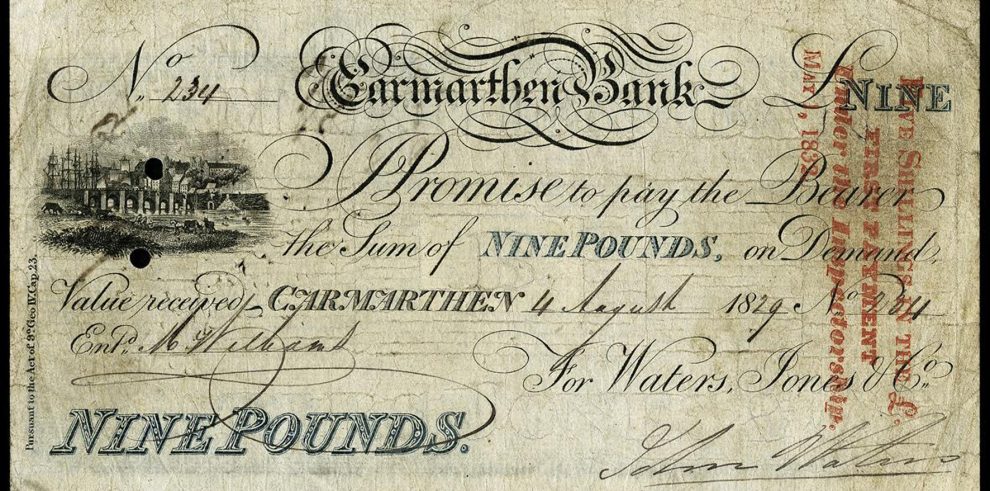 No. 234 Carmarthen Bank £ NINE
I Promise to pay the Bearer
the Sum of NINE POUNDS, on Demand,
Value received CARMARTHEN 4 August 1829 No 234
Entd. M Williams
For Waters, Jones & Co.
NINE POUNDS.
John Waters
Pursuant to the Act of 9o. Geo IV. Cap. 23.
FIVE SHILLINGS IN THE £.
FIRST PAYMENT
Under the Inspectorship.
MAY 1, 183